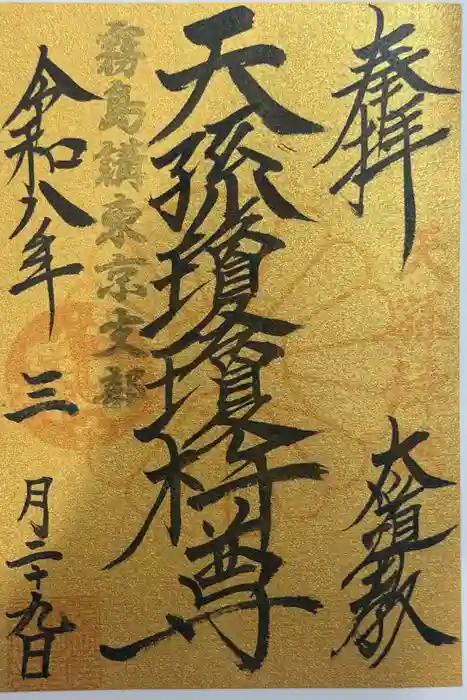 奉拝
大道教
天孫瓊瓊杵尊
霧島鎮東京支部
令和八年三月二十九日